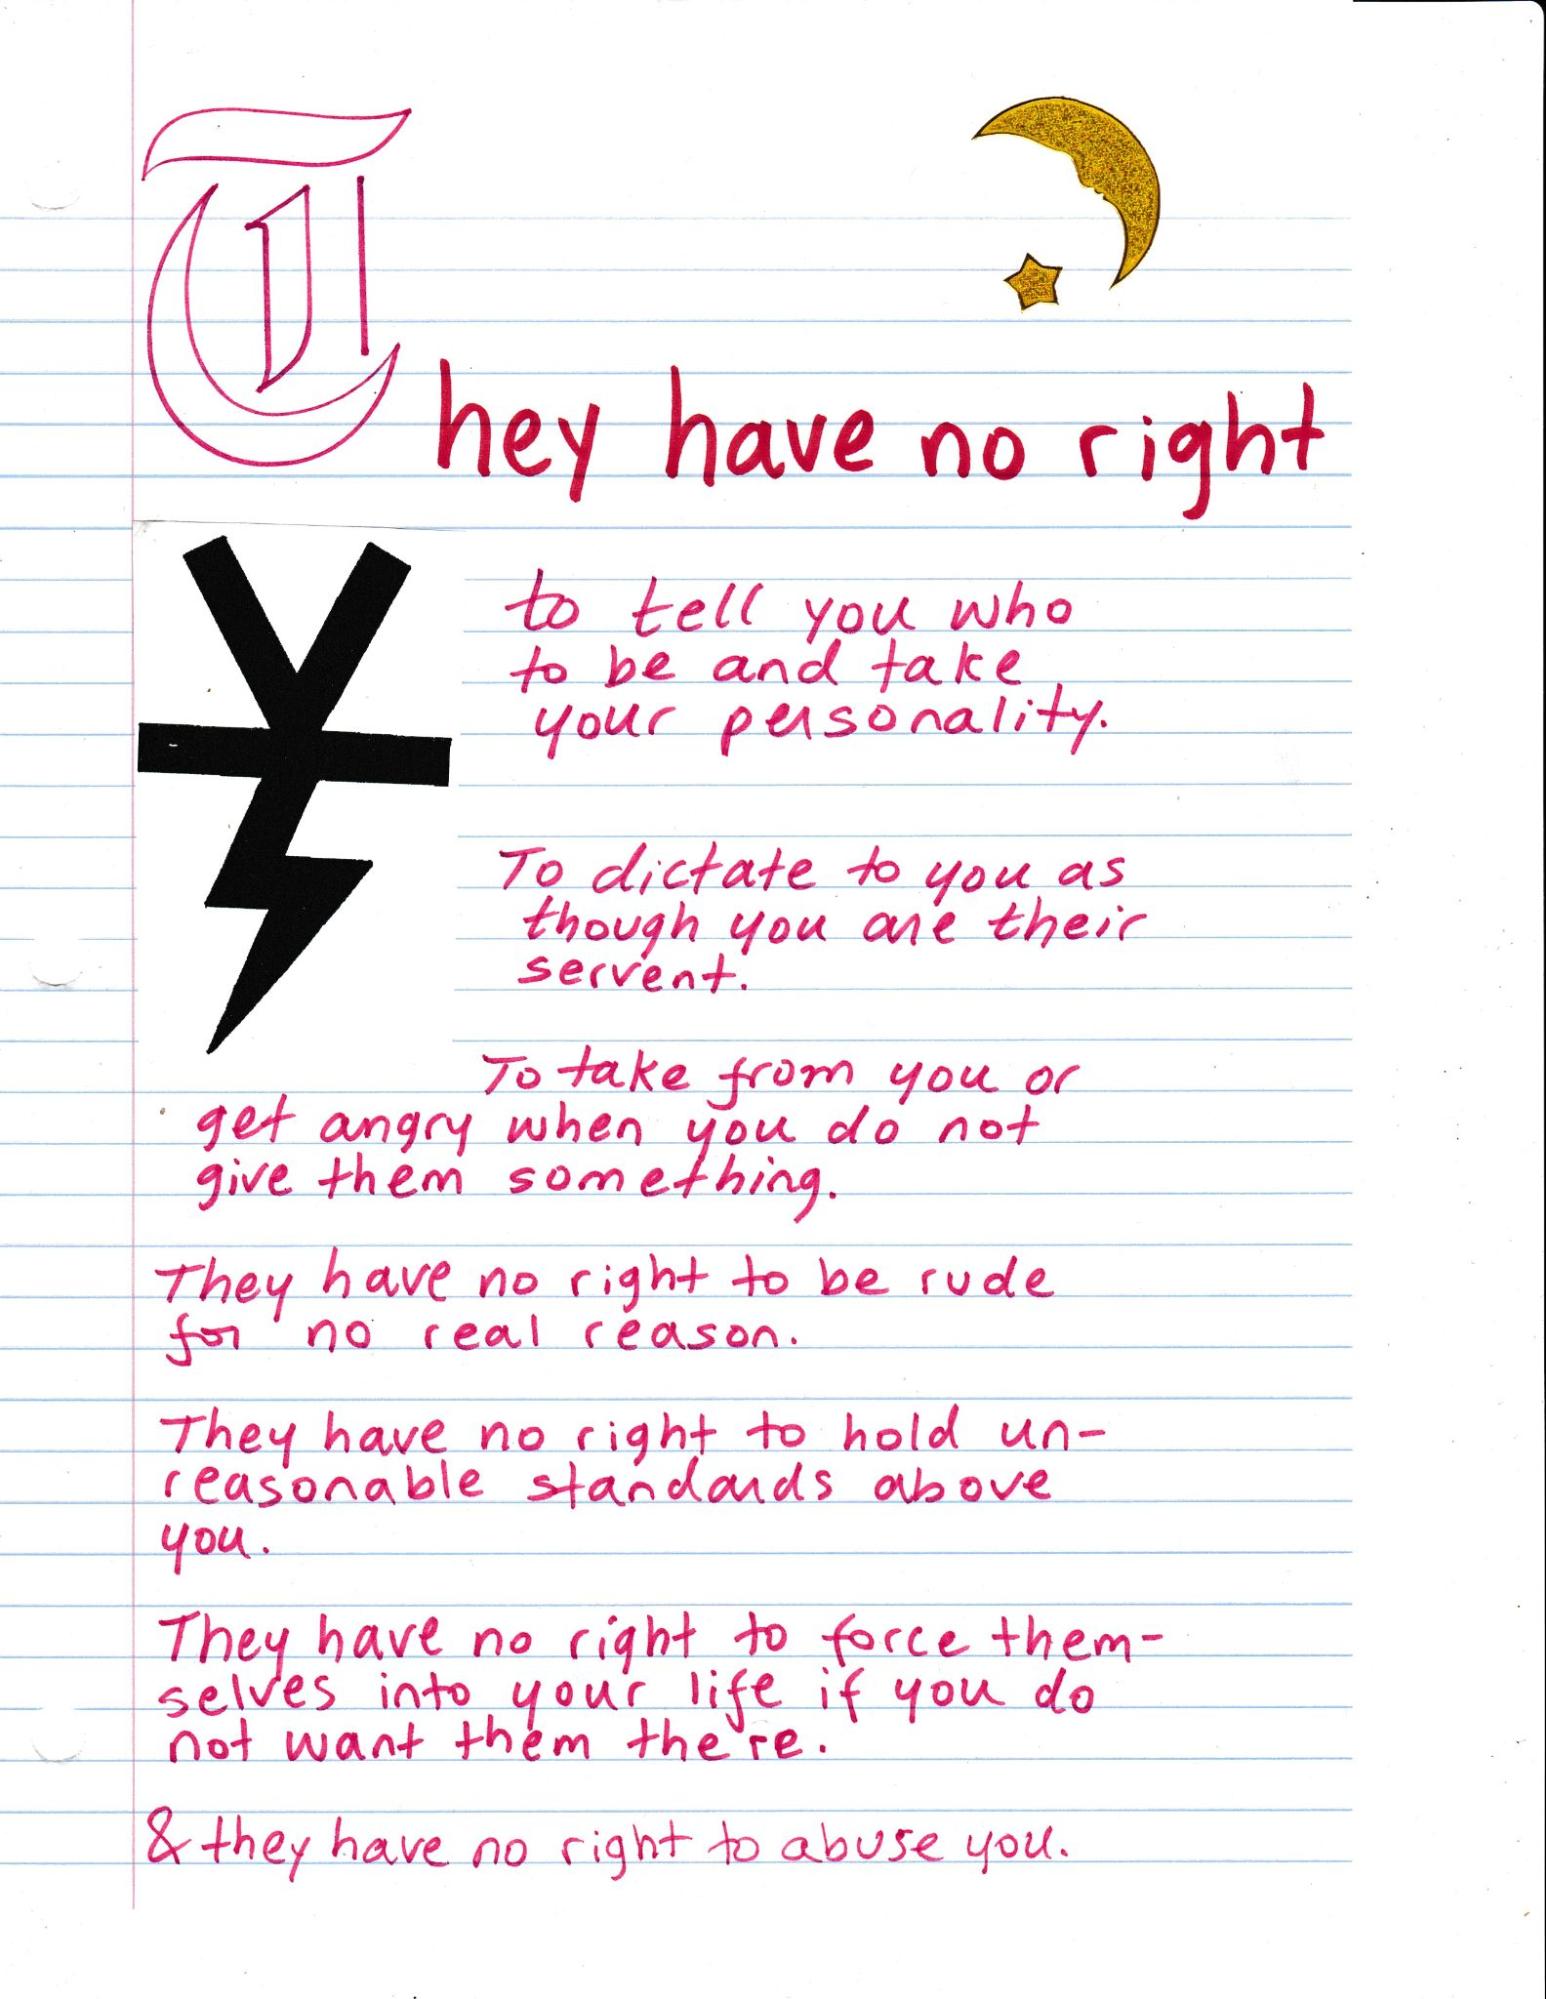 They have no right
to tell you who
to be and take
your personality.
To dictate to you as
though you are their
servent.
To take from you or
get angry when you do not
give them something.
They have no right to be rude
for no real reason.
They have no right to hold un-
reasonable standards above
you.
They have no right to force them-
selves into your life if you do
not want them there.
& they have no right to abuse you.